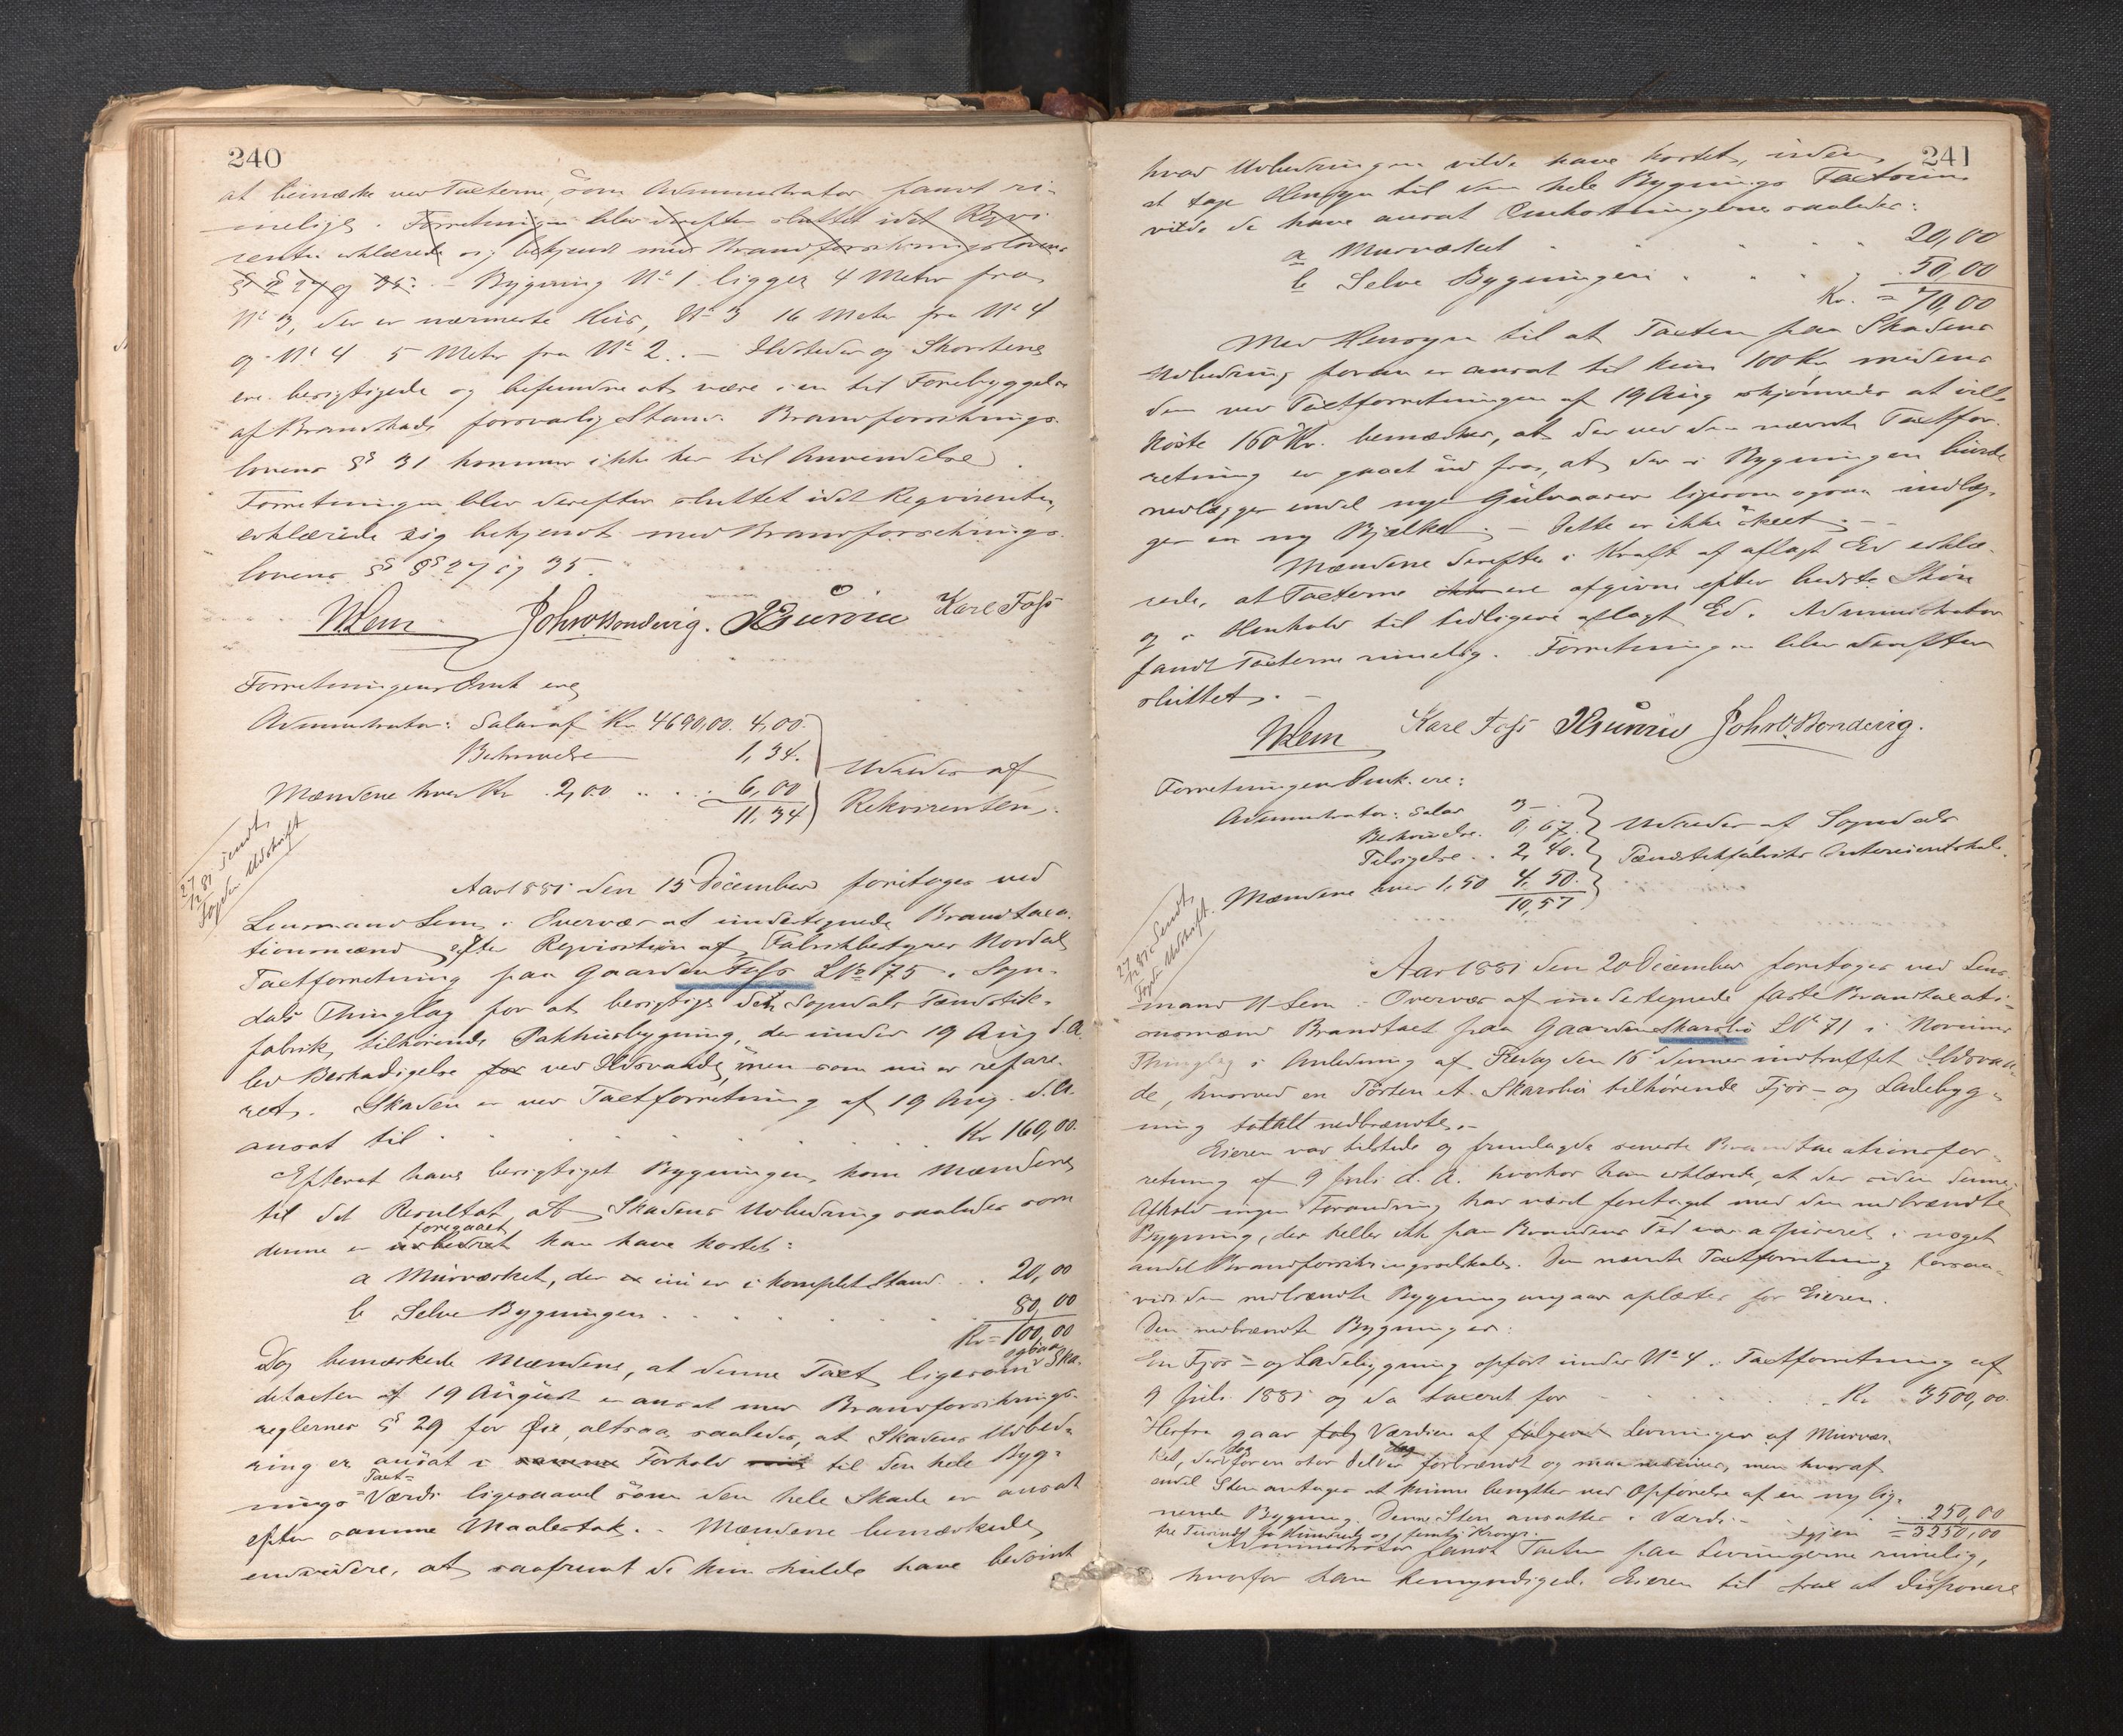 240
at bemærke ved Taxterne, som Administrator fandt ri-
melige. Forretningen blev derefter sluttet idet Reqvi-
renten erklærede sig bekjendt med Brandforsikringslovens
§§ 27 og 35. - Bygning No 1 ligger 4 Meter fra
No 3, der er nærmeste Huus, No 3 16 Meter fra No 4
og No 4 5 Meter fra No 2. - Ildsteder og Skorstene
ere besigtigede og befundne at være i en til Forebyggelse
af Brandskade forsvarlig Stand. Brandforsikrings-
lovens § 31 kommer ikke her til Anvendelse.
Forretningen blev derefter sluttet idet Reqvirenten
erklærede sig bekjendt med Brandforsikrings-
lovens §§ 27 og 35.
N Lem John O Bondevig. Karl Foss
Forretningens Omk. ere
Administrator: Salar af Kr 4690,00. 4,00.
Beskrivelse 1,34.
Mændene hver Kr. 2,00 .. . . 6,00
11,34
Udredes af
Rekvirenten.
27/12 81 Sendt
Fogden Udskrift
Aar 1881 den 15 December foretoges ved
Lensmand Lem i Overvær af undertegnede Brandtaxa-
tionsmænd efter Reqvisition af Fabrikbestyrer Nordal
Taxtforretning paa Gaarden Foss LNo 75 i Sogn-
dals Thinglag for at besigtige den Sogndals Tændstik-
fabrik tilhørende Pakhusbygning, der under 19 Aug d. A.
lev Beskadigelse for ved Ildsvaade, men som nu er repare-
ret. Skaden er ved Taxtforretning af 19 Aug. d. A.
ansat til . . . . . . . . Kr 160,00.
Efterat have besigtiget Bygningen, kom Mændene
til det Resultat, at Skadens Udbedring saaledes som
foregaaet
denne er udbedret kan have kostet:
a Murværket, der er nu er i komplet Stand . . 20,00
b Selve Bygningen . . . . . . 80,00
Kr = 100,00
Dog bemærkede Mændene, at denne Taxt ligesom ogsaa Ska-
detaxten af 19 August er ansat med Brandforsikrings-
reglernes § 29 for Øie, altsaa saaledes, at Skadens Udbed-
ring er ansat i samme Forhold til den hele Byg-
nings Taxt-Værdi ligesaavel som den hele Skade er ansat
efter samme Maalestok. - Mændene bemærkede
endvidere, at saafremt de kun skulde have bedømt
241
hvad Udbedringen vilde have kostet, uden
at tage Hensyn til den hele Bygnings Taxtsum
vilde de have ansat Omkostningerne saaledes:
a Murværket . . . . . 20,00
b Selve Bygningen . . . . 50,00
Kr. = 70,00
Med Hensyn til at Taxten paa Skadens
Udbedring foran er ansat til kun 100 Kr. medens
den ved Taxtforretningen af 19 Aug skjønnedes at ville
koste 160 Kr. bemærkes, at der ved den nævnte Taxtfor-
retning er gaaet ud fra, at der i Bygningen burde
nedlægges endel nye Gulvaaser ligesom ogsaa indlæg-
ges en ny Bjælke. - Dette er ikke skeet. -
Mændene derefter i Kraft af aflagt Ed erklæ-
rede, at Taxterne ere afgivne efter bedste Skjøn
og i Henhold til tidligere aflagt Ed. Administrator
fandt Taxterne rimelig. Forretningen blev derefter
sluttet. -
N Lem Karl Foss John O. Bondevig.
Forretningens Omk. ere:
Administrator: Salar 3 -
Beskrivelse. 0,67.
Tilsigelse . . 2,40.
Mændene hver 1,50 4,50.
10,57
Udredes af Sogndals
Tændstikfabriks Interessentskab.
27/12 81 Sendt
Fogden Udskrift.
Aar 1881 den 20 December foretoges ved Lens-
mand N Lem i Overvær af undertegnede faste Brandtaxati-
onsmænd Brandtaxt paa Gaarden Skarsbø LNo 71 i Norums
Thinglag i Anledning af Fredag den 16de dennes indtruffet Ildsvaa-
de, hvorved en Tosten et. Skarsbø tilhørende Fjøs- og Ladebyg-
ning totalt nedbrændte. -
Eieren var tilstede og fremlagde seneste Brandtaxationsfor-
retning af 9 Juli d. A. hvorhos han erklærede, at der siden dennes
Afhold ingen Forandring har været foretaget med den nedbrændte
Bygning, der heller ikke paa Brandens Tid var assureret i noget
andet Brandforsikringsselskab. Den nævnte Taxtforretning forsaa-
vidt den nedbrændte Bygning angaar oplæstes for Eieren.
Den nedbrændte Bygning er:
En Fjøs- og Ladebygning opført under No 4 i Taxtforretning af
9 Juli 1881 og da taxeret for . . . . . Kr. 3500,00.
Herfra gaar Værdien af Levninger af Murvær-
ket, der for en stor Del er forbrændt og maa nedrives, men hvoraf
endel Sten antages at kunne benyttes ved Opførelse af en ny lig-
nende Bygning. Denne Sten ansattes i Værdi . . . 250,00
tre Tusinde to Hundrede og femti Kroner. Igjen = 3250,00
Administrator fandt Taxten paa Levningerne rimelig,
hvorfor han bemyndigede Eieren til frit at disponere